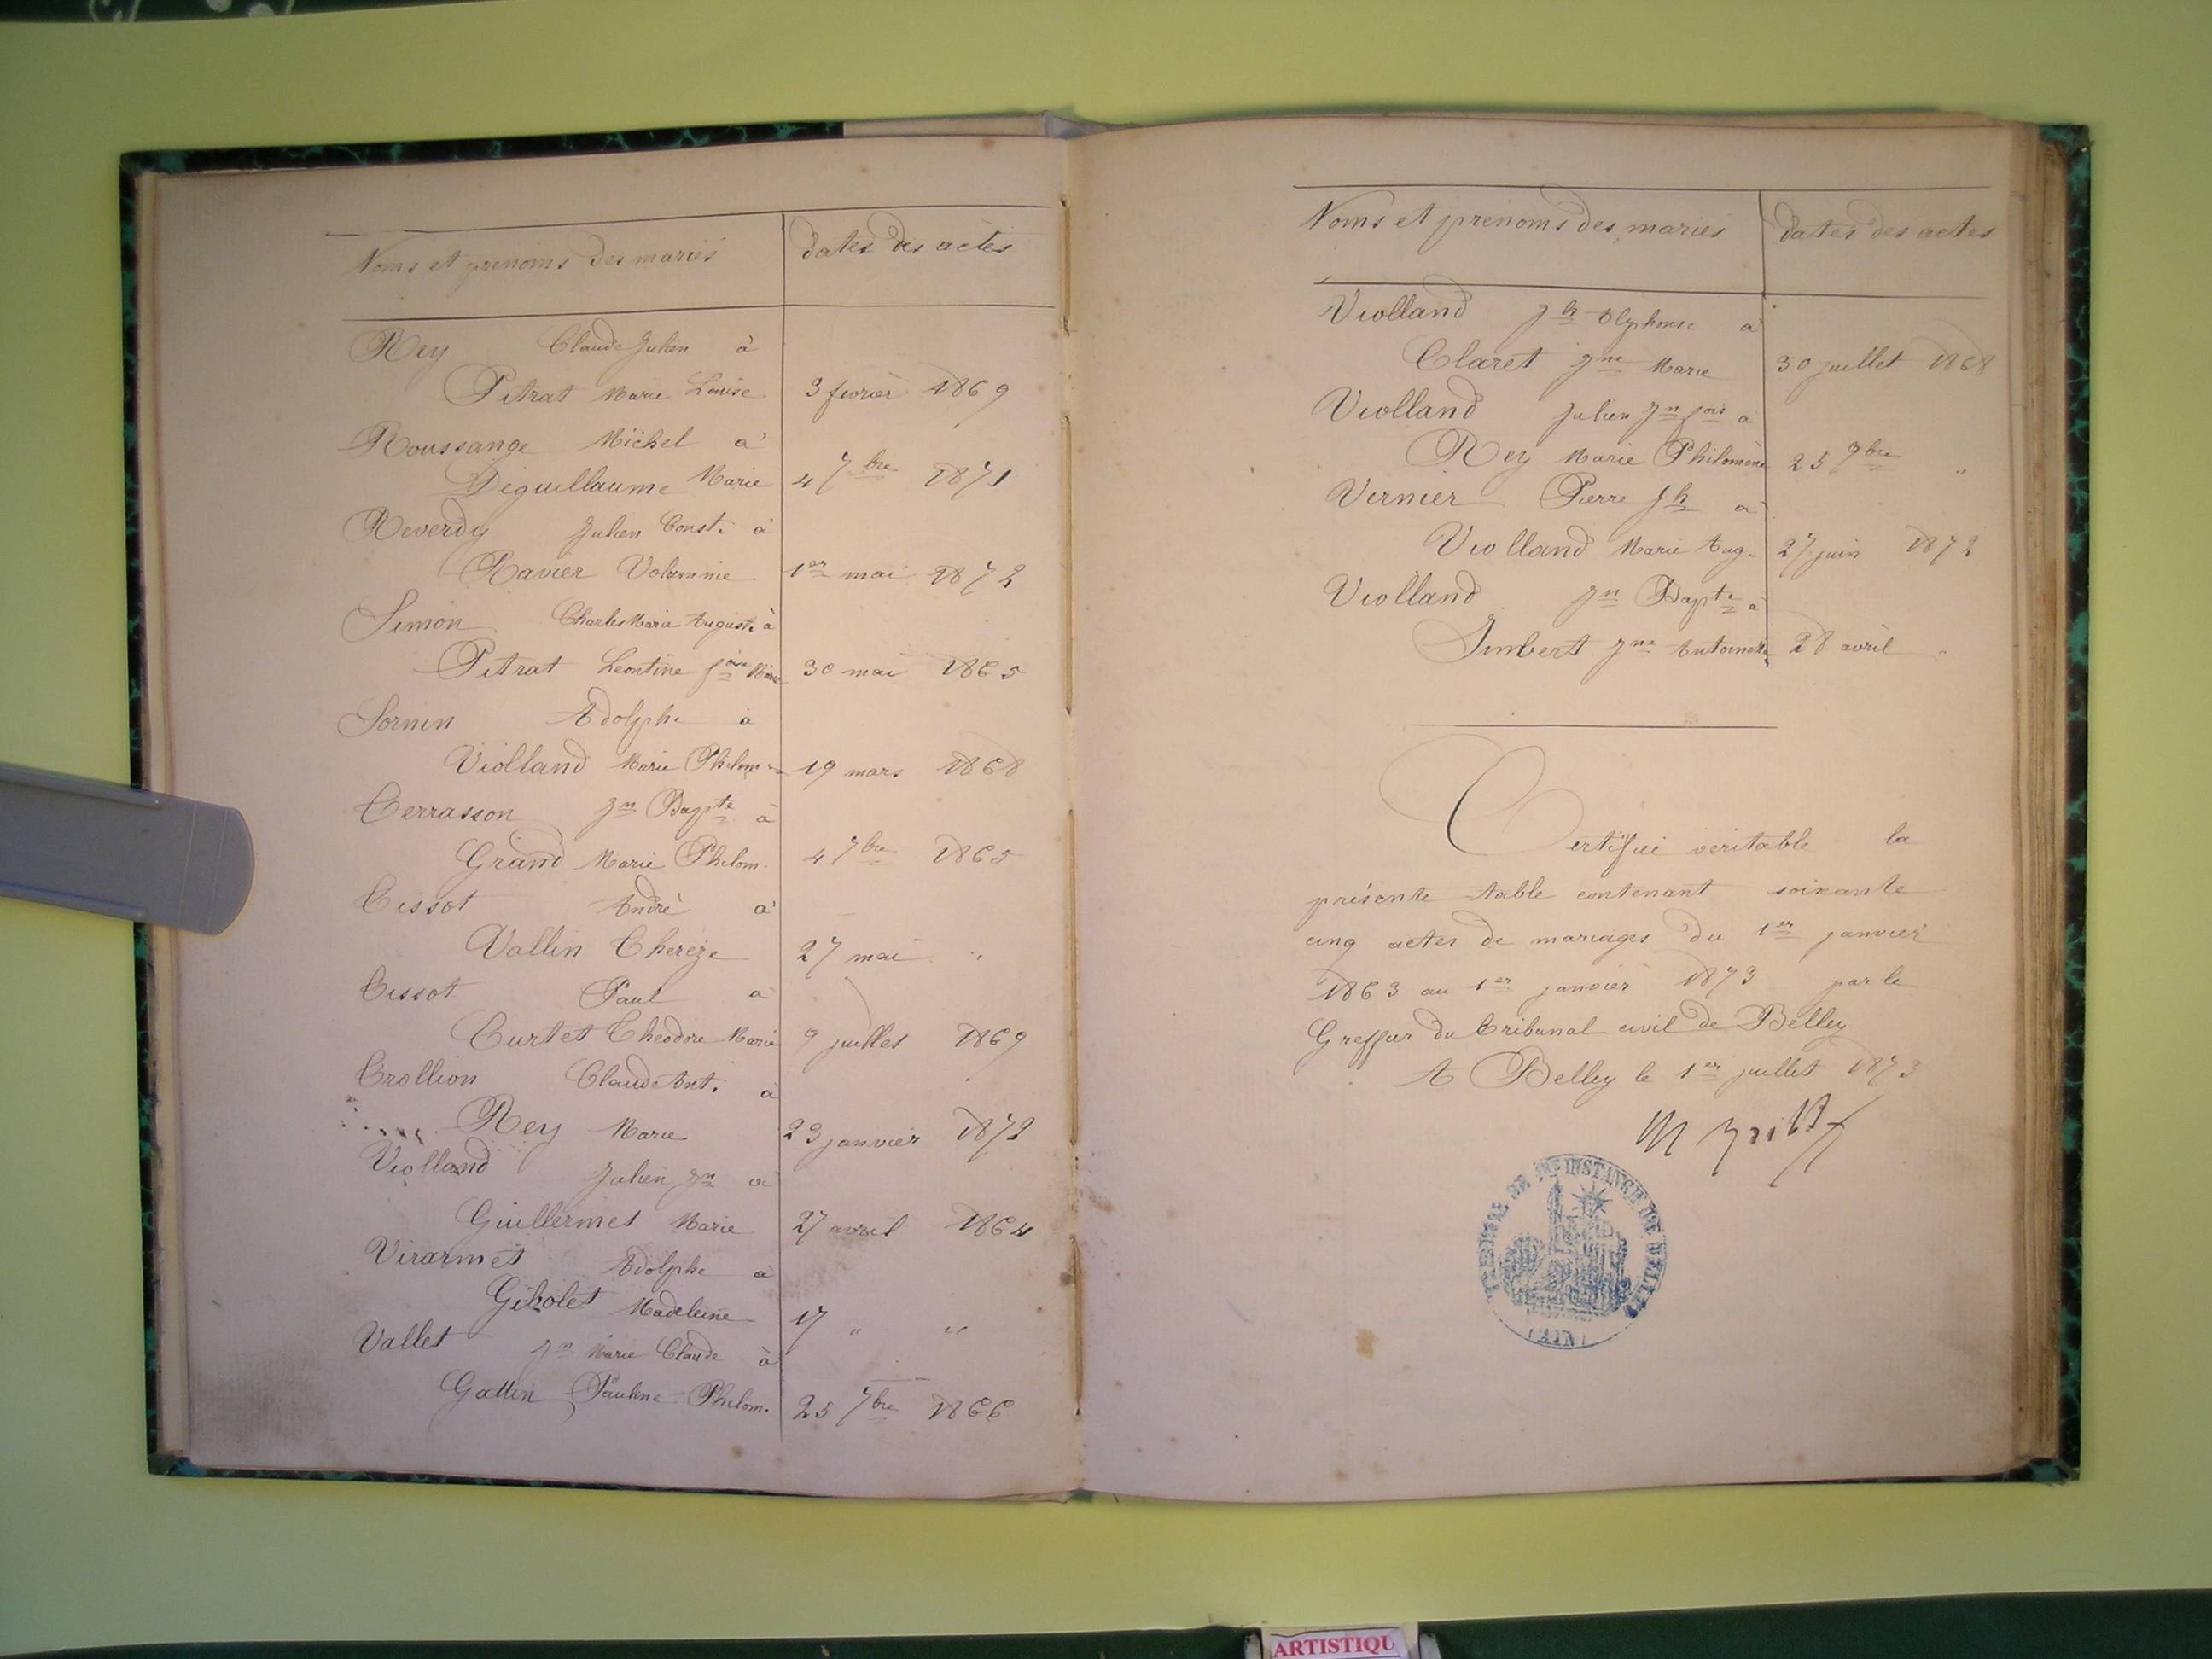 Noms et prénoms des mariés dates des actes
Rey Claude Julien à
Pitrat Marie Louise 3 février 1869
Roussange Michel à
Deguillaume Marie 4 7bre 1871
Reverdy Julien Const. à
Ravier Volumnie 1er mai 1872
Simon Charles Marie Auguste à
Pitrat Leontine fçoise Marie 30 mai 1865
Sornin Adolphe à
Violland Marie Philom. 19 mars 1868
Terrasson Jn Bapte à
Grand Marie Philom. 4 7bre 1865
Tissot André à
Vallin Thereze 27 mai "
Tissot Paul à
Curtet Theodore Marie 9 juillet 1869
Trollion Claude Ant. à
Rey Marie 23 janvier 1872
Violland Julien Jn à
Guillermet Marie 27 avril 1864
Virarmet Adolphe à
Madeleine 17 " "
Vallet Jn Marie Claude à
Gattin Pauline Philom. 25 7bre 1866
Noms et prénoms des mariés dates des actes
Violland Jh Alphonse à
Claret Jne Marie 30 juillet 1868
Violland Julien Jn fois à
Rey Marie Philomène 25 9bre "
Vernier Pierre Jh à
Violland Marie Aug. 27 juin 1872
Violland Jn Bapte à
Imbert Jne Antoinette 28 avril "
Certifié véritable la
présente table contenant soixante
cinq actes de mariages du 1er janvier
1863 au 1er janvier 1873 par le
Greffier du tribunal civil de Belley
A Belley le 1er juillet 1873
TRIBUNAL DE 1RE INSTANCE DE BELLEY
(AIN)
ARTISTIQU